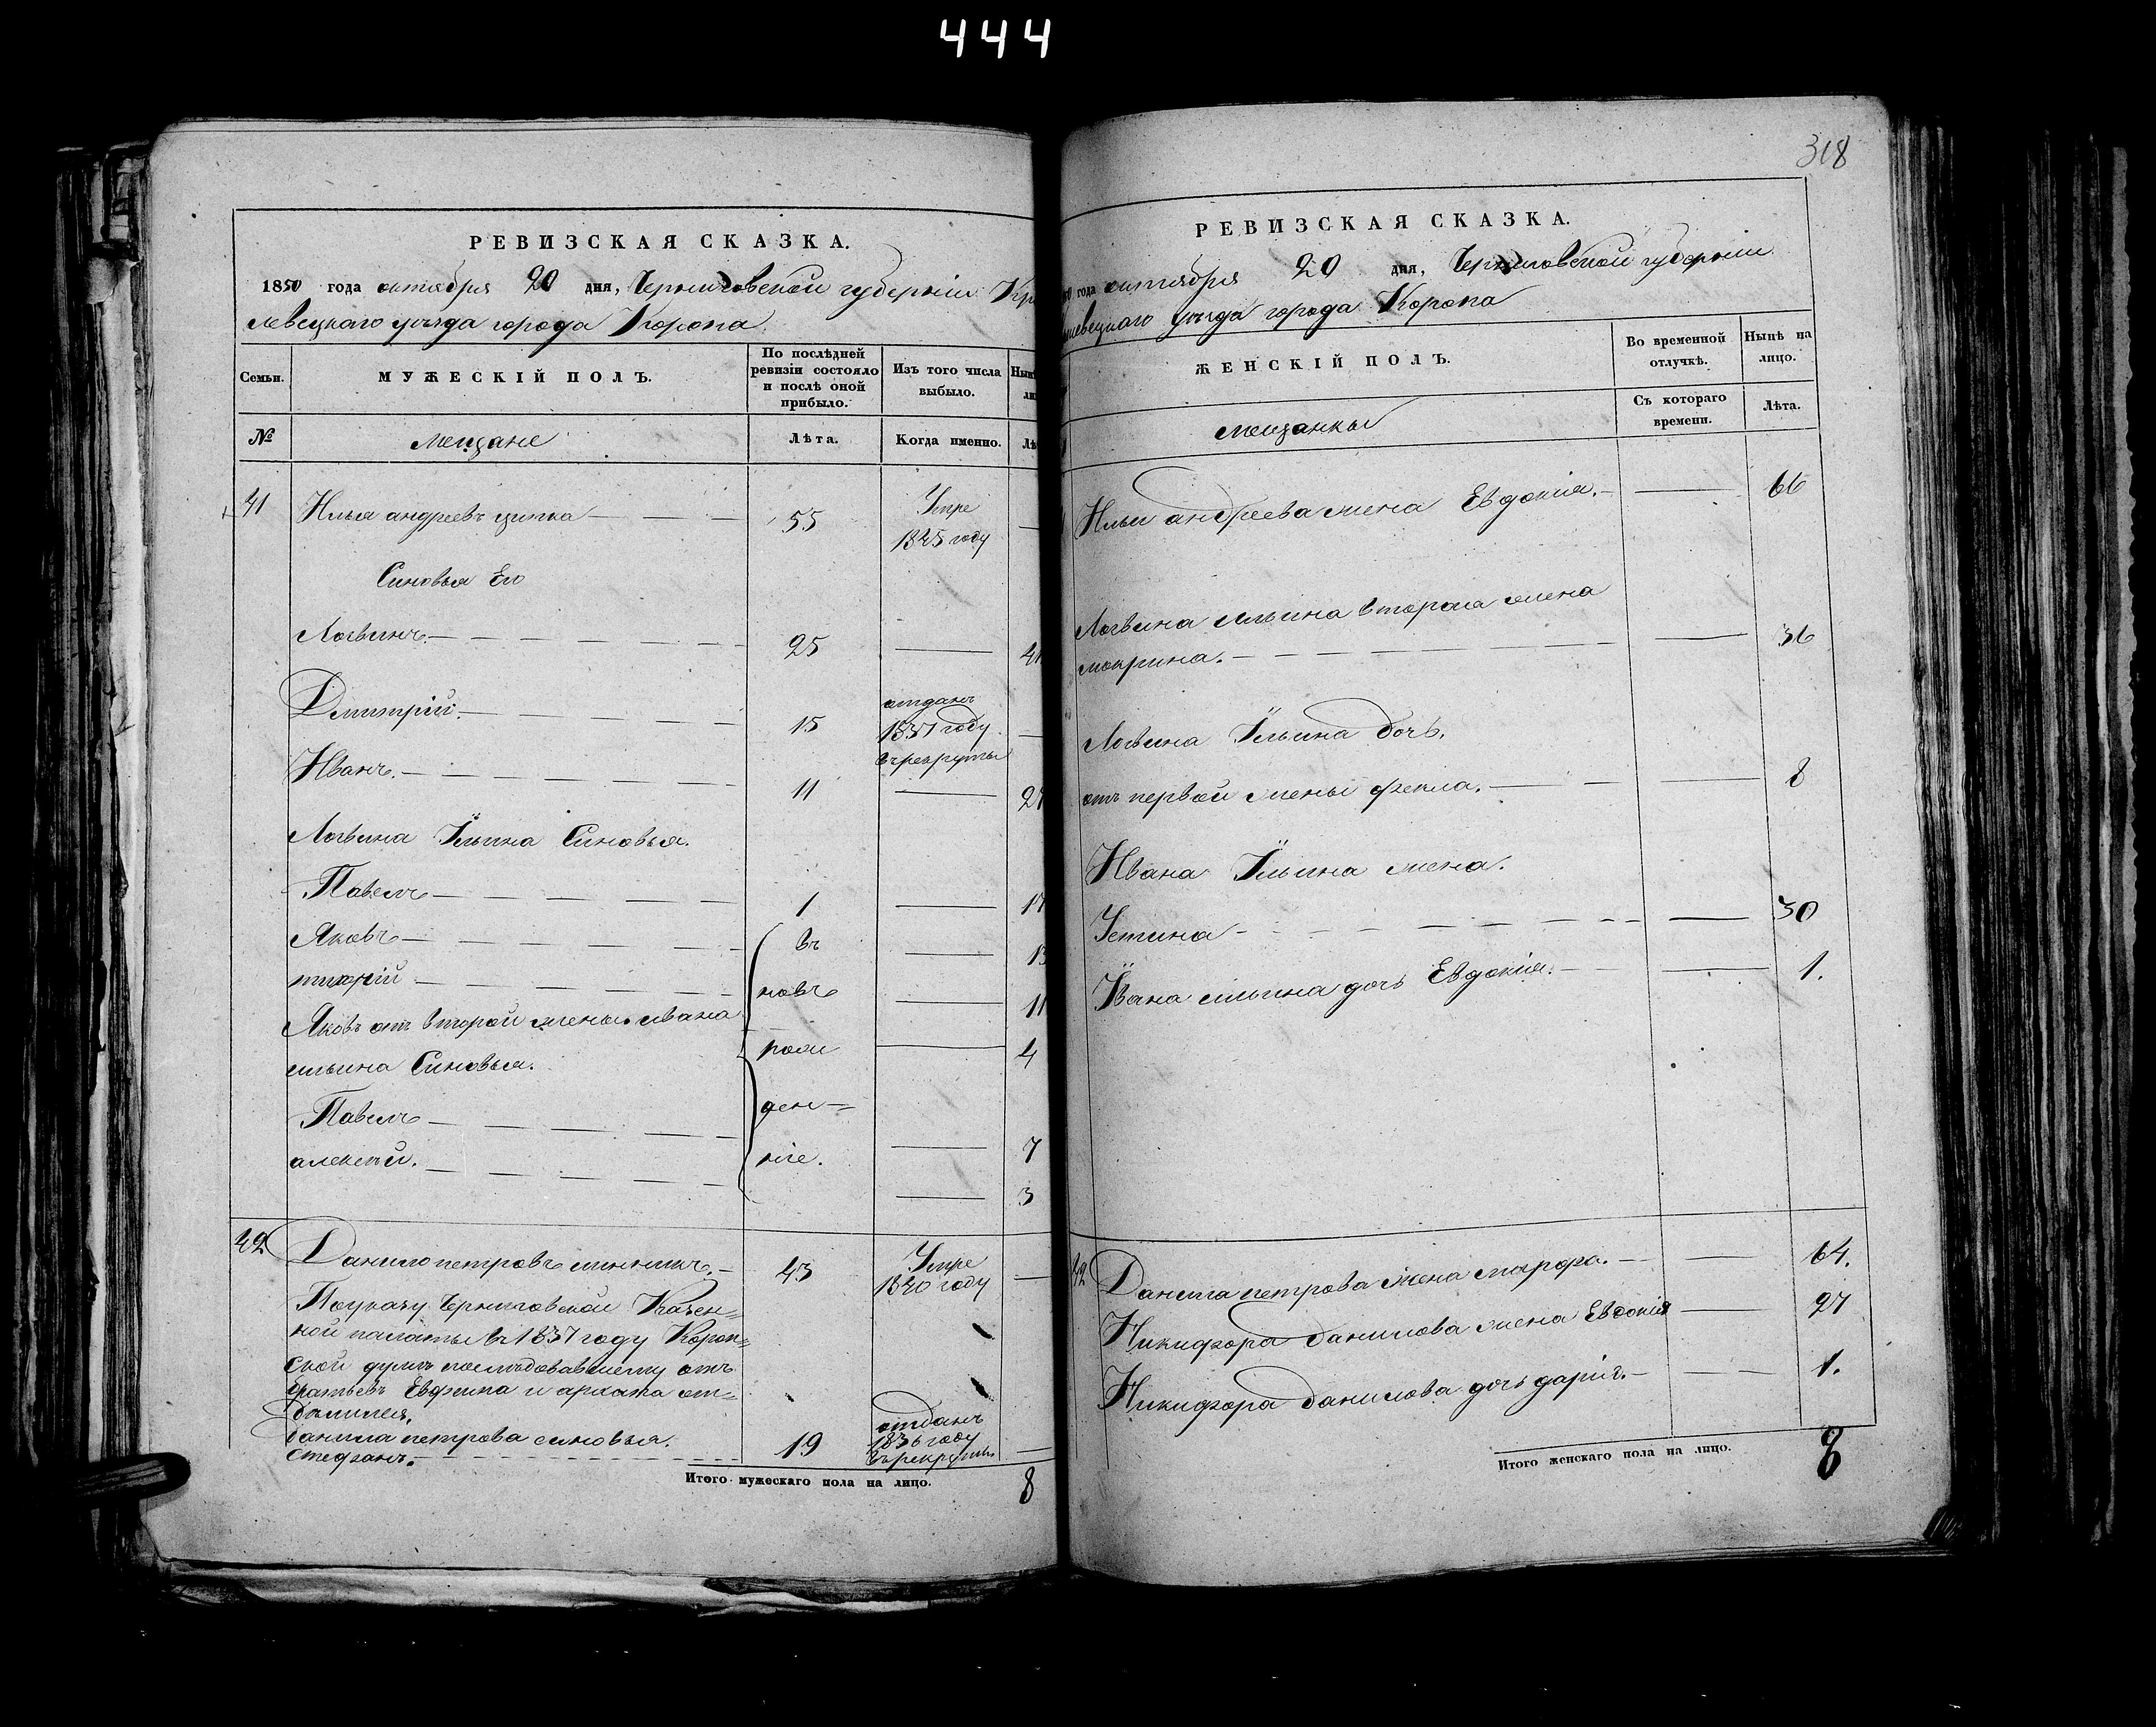 444
РЕВИЗСКАЯ СКАЗКА.
1850 года октября 20 дня, Черниговской губерніи Кро
левецкаго уѣзда города Коропа.
Семьи.
МУЖЕСКІЙ ПОЛЪ.
По послѣдней ревизіи состояло и послѣ оной прибыло.
Изъ того числа выбыло.
№
Мещане
Лѣта.
Когда именно.
41
Илья андреевъ ципка 55 Умре
1845 году
Синовья Его
Логвинъ. 25 41
Дмитрій. 15 отданъ
1837 году
врекруты
Иванъ. 11 27
Логвина Ильина Синовья.
Павелъ 1 17
Яковъ въ 13
тихоній новъ 11
Яковъ отъ второй жены. ивана
ильина Синовья. рож 4
Павелъ ден= 7
алексѣй. ніе. 3
42
Данило петровъ 43 Умре
1840 году
Поуказу Черниговской Казен=
ной палаты въ 1837 году Короп=
ской думѣ последовавшему отъ
братьевъ Евфима и архипа от=
далился,
данила петрова синовья.
стефанъ. 19 отданъ
1836 году
врекруты
Итого мужескаго пола на лицо. 8
318
РЕВИЗСКАЯ СКАЗКА.
50 года октября 20 дня, Черниговской губерніи
левецкаго уѣзда города Коропа
ЖЕНСКІЙ ПОЛЪ.
Во временной отлучкѣ.
Нынѣ на лицо.
мещанки
Съ котораго времени.
Лѣта.
Ильи андреева жена Евдокія. 66
Логвина ильина вторая жена
мокрина. 36
Логвина Ильина дочь.
отъ первой жены фекла. 8
Ивана Ильина жена.
Устина 30
Ивана ильина дочь Евдокія. 1.
42
Данила петрова жена марфа. 64.
Никифора данилова жена Евдокія 27
Никифора данилова дочь дарія. 1.
Итого женскаго пола на лицо. 8